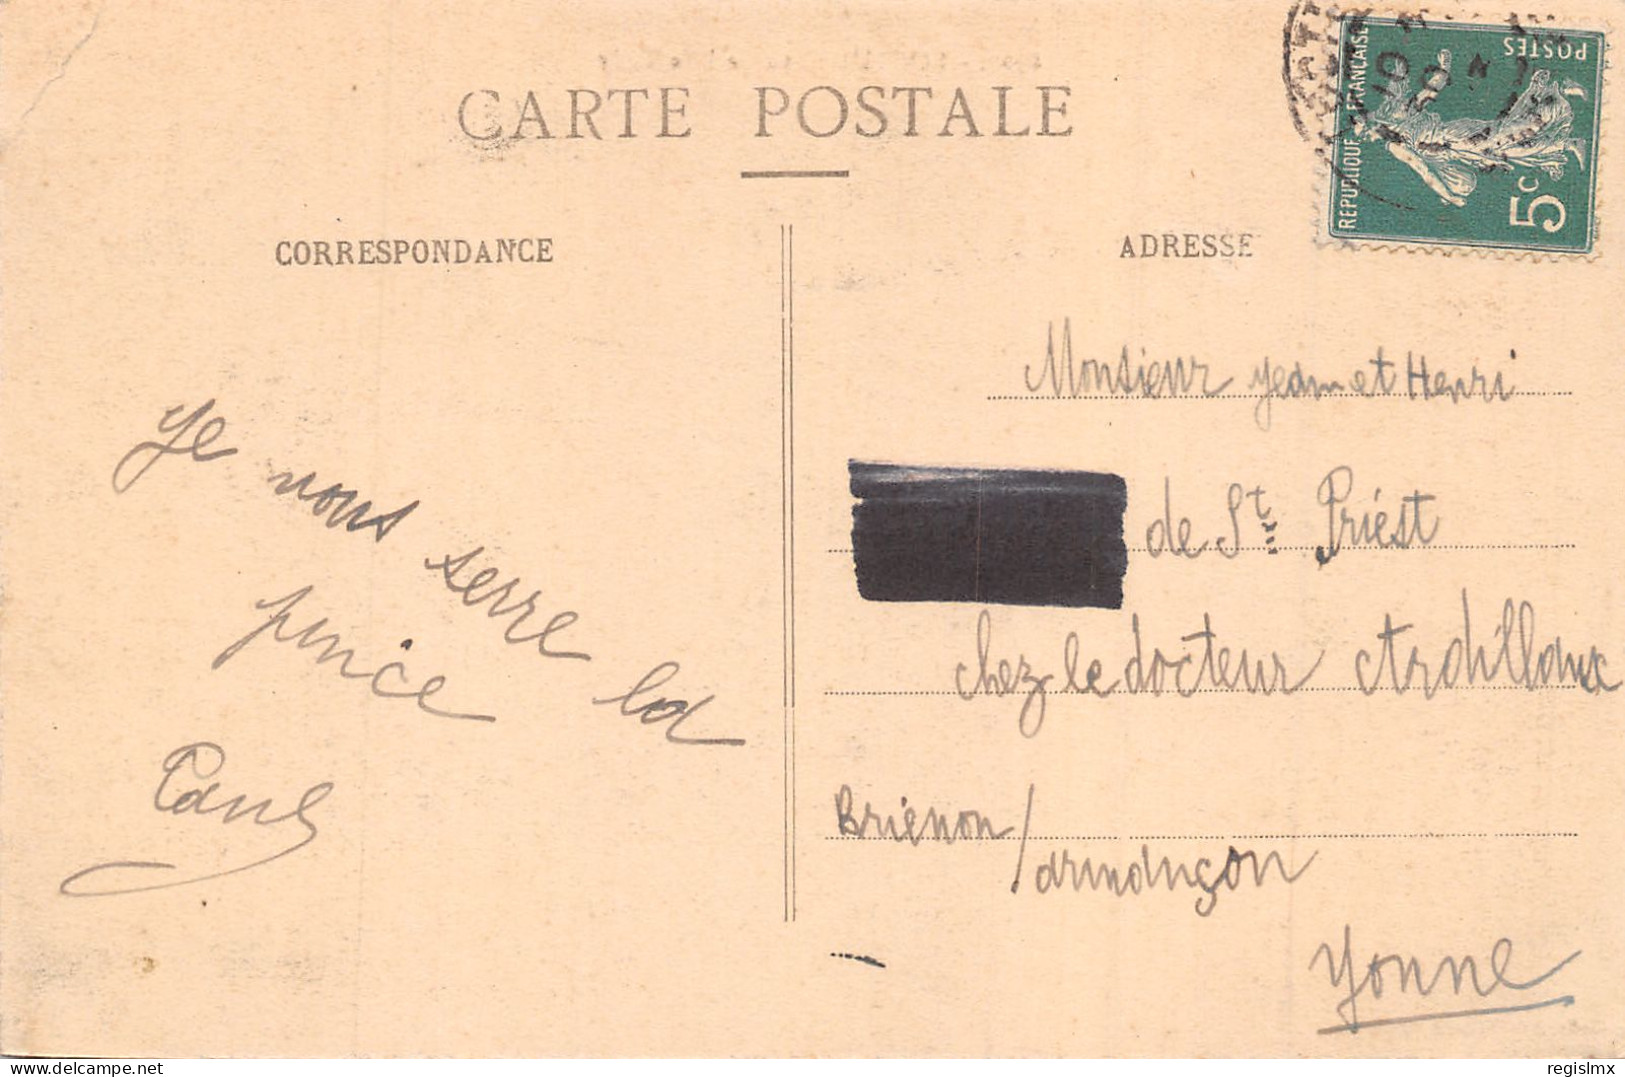 CARTE POSTALE
CORRESPONDANCE
ADRESSE
REPUBLIQUE FRANÇAISE
POSTES
5c
Je vous serre la
pince
Paul
Monsieur Jean et Henri
de St Priest
chez le docteur Ardillaux
Brienon/
armançon
Yonne
delcampe.net
regislmx